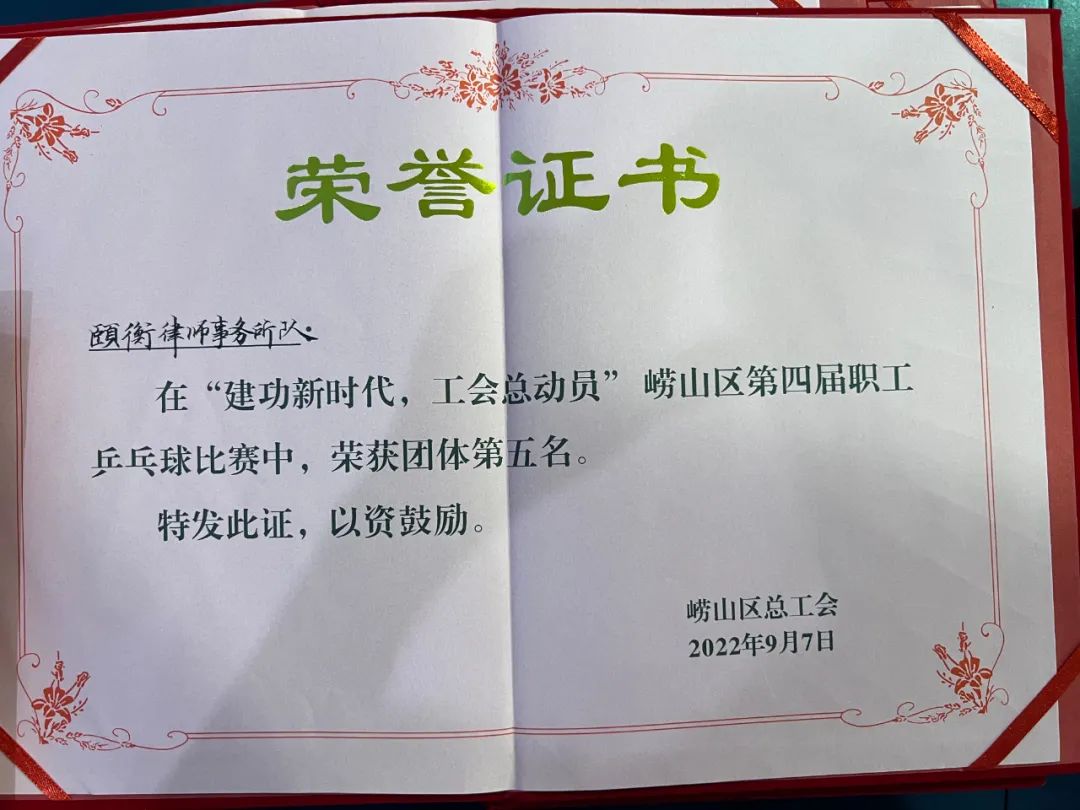 荣誉证书
颐衡律师事务所队:
在“建功新时代，工会总动员”崂山区第四届职工
乒乓球比赛中，荣获团体第五名。
特发此证，以资鼓励。
崂山区总工会
2022年9月7日